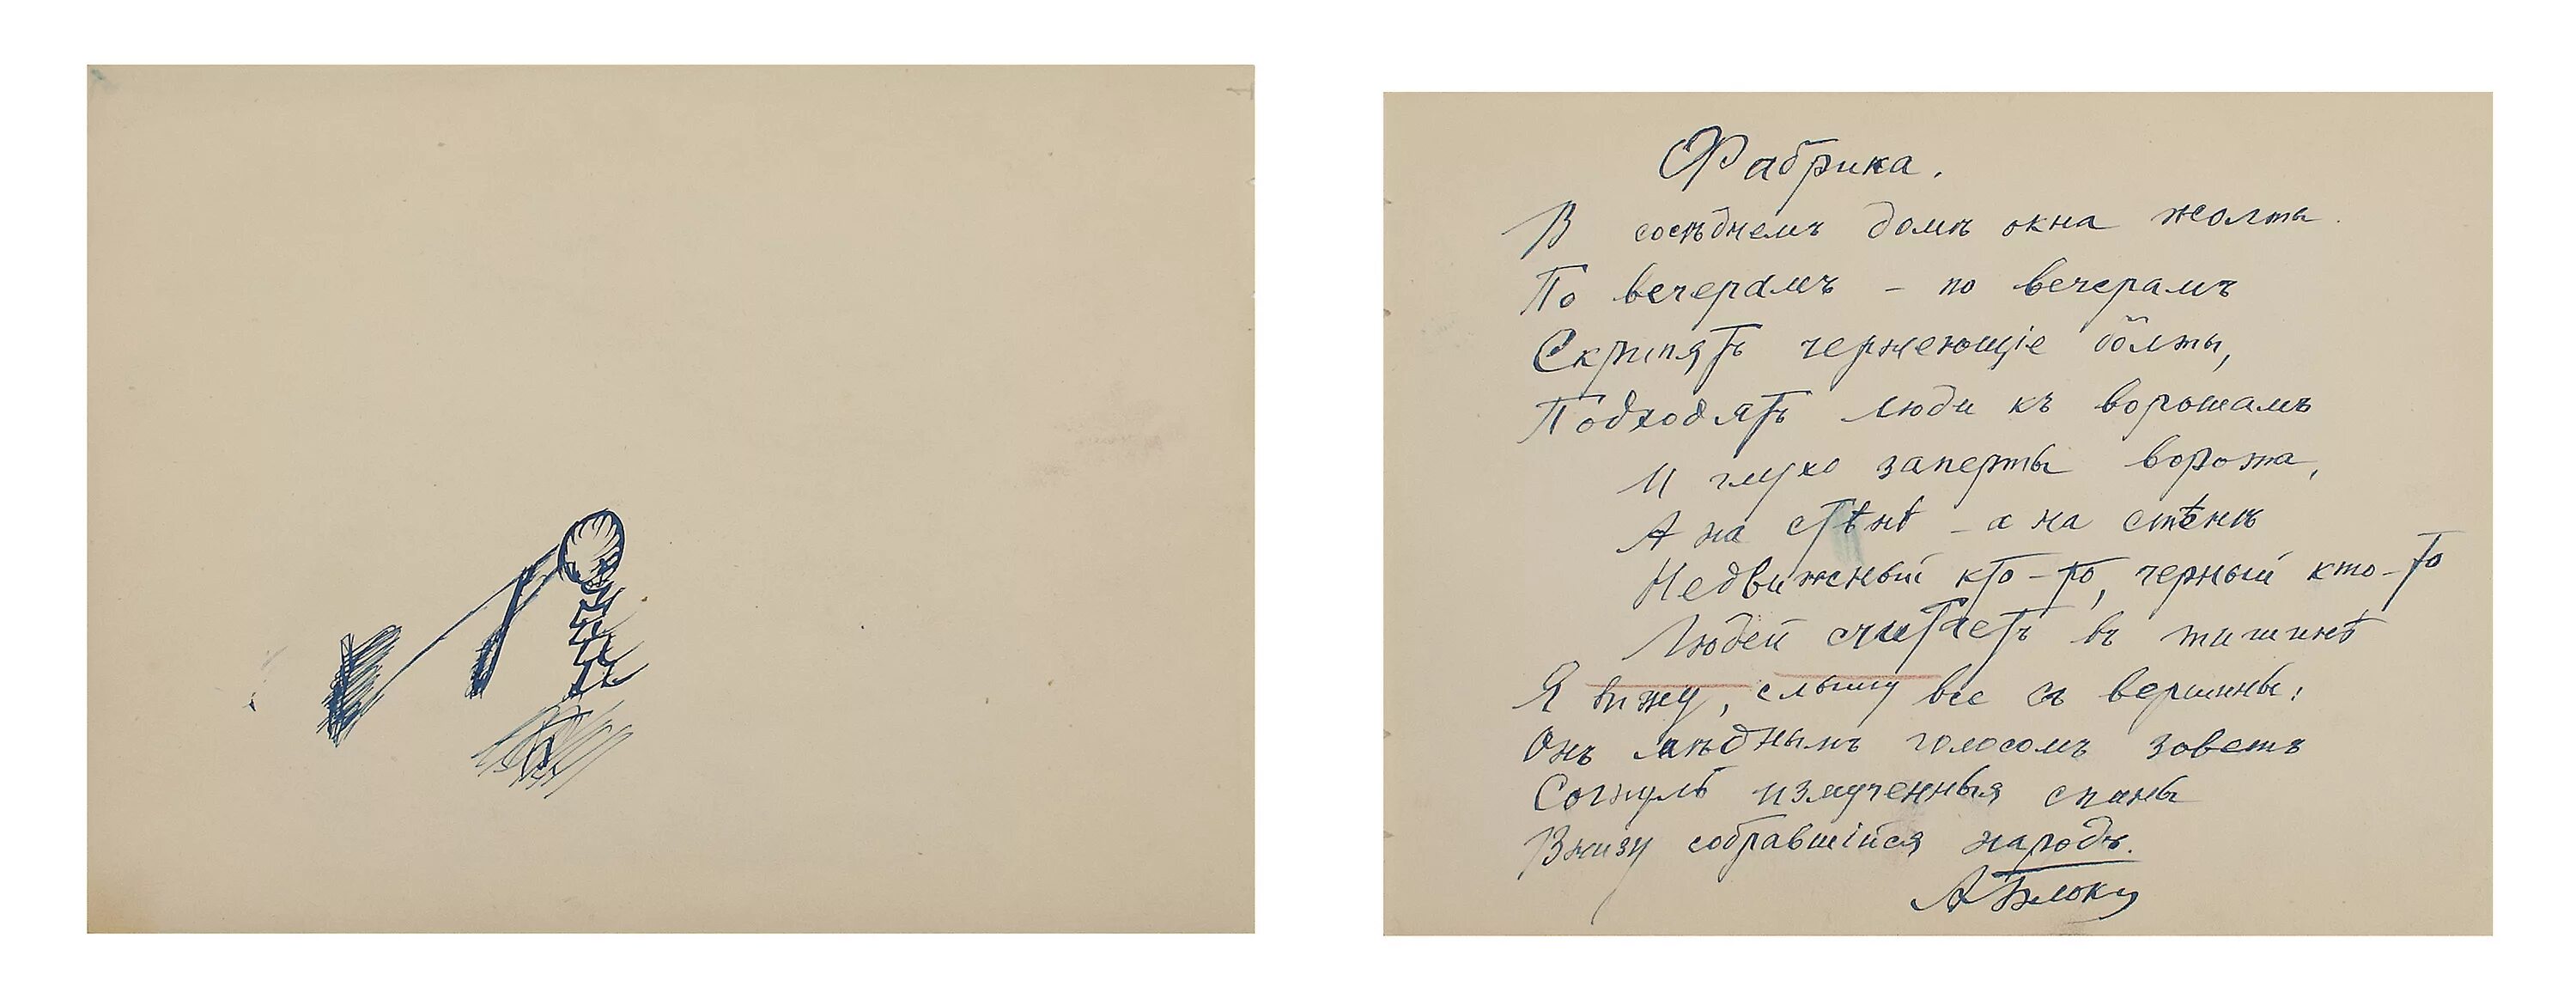 Фабрика.
В сосѣднемъ домѣ окна жолты.
По вечерамъ – по вечерамъ
Скрипятъ чернеющіе болты,
Подходятъ люди къ воротамъ
И глухо заперты ворота,
А на стѣнѣ – а на стѣнѣ
Недвижный кто-то, черный кто-то
Людей считаетъ въ тишинѣ
Я вижу, слышу все съ вершины:
Онъ мѣднымъ голосомъ зоветъ
Согнуть измученныя спины
Внизу собравшійся народъ.
А Блокъ